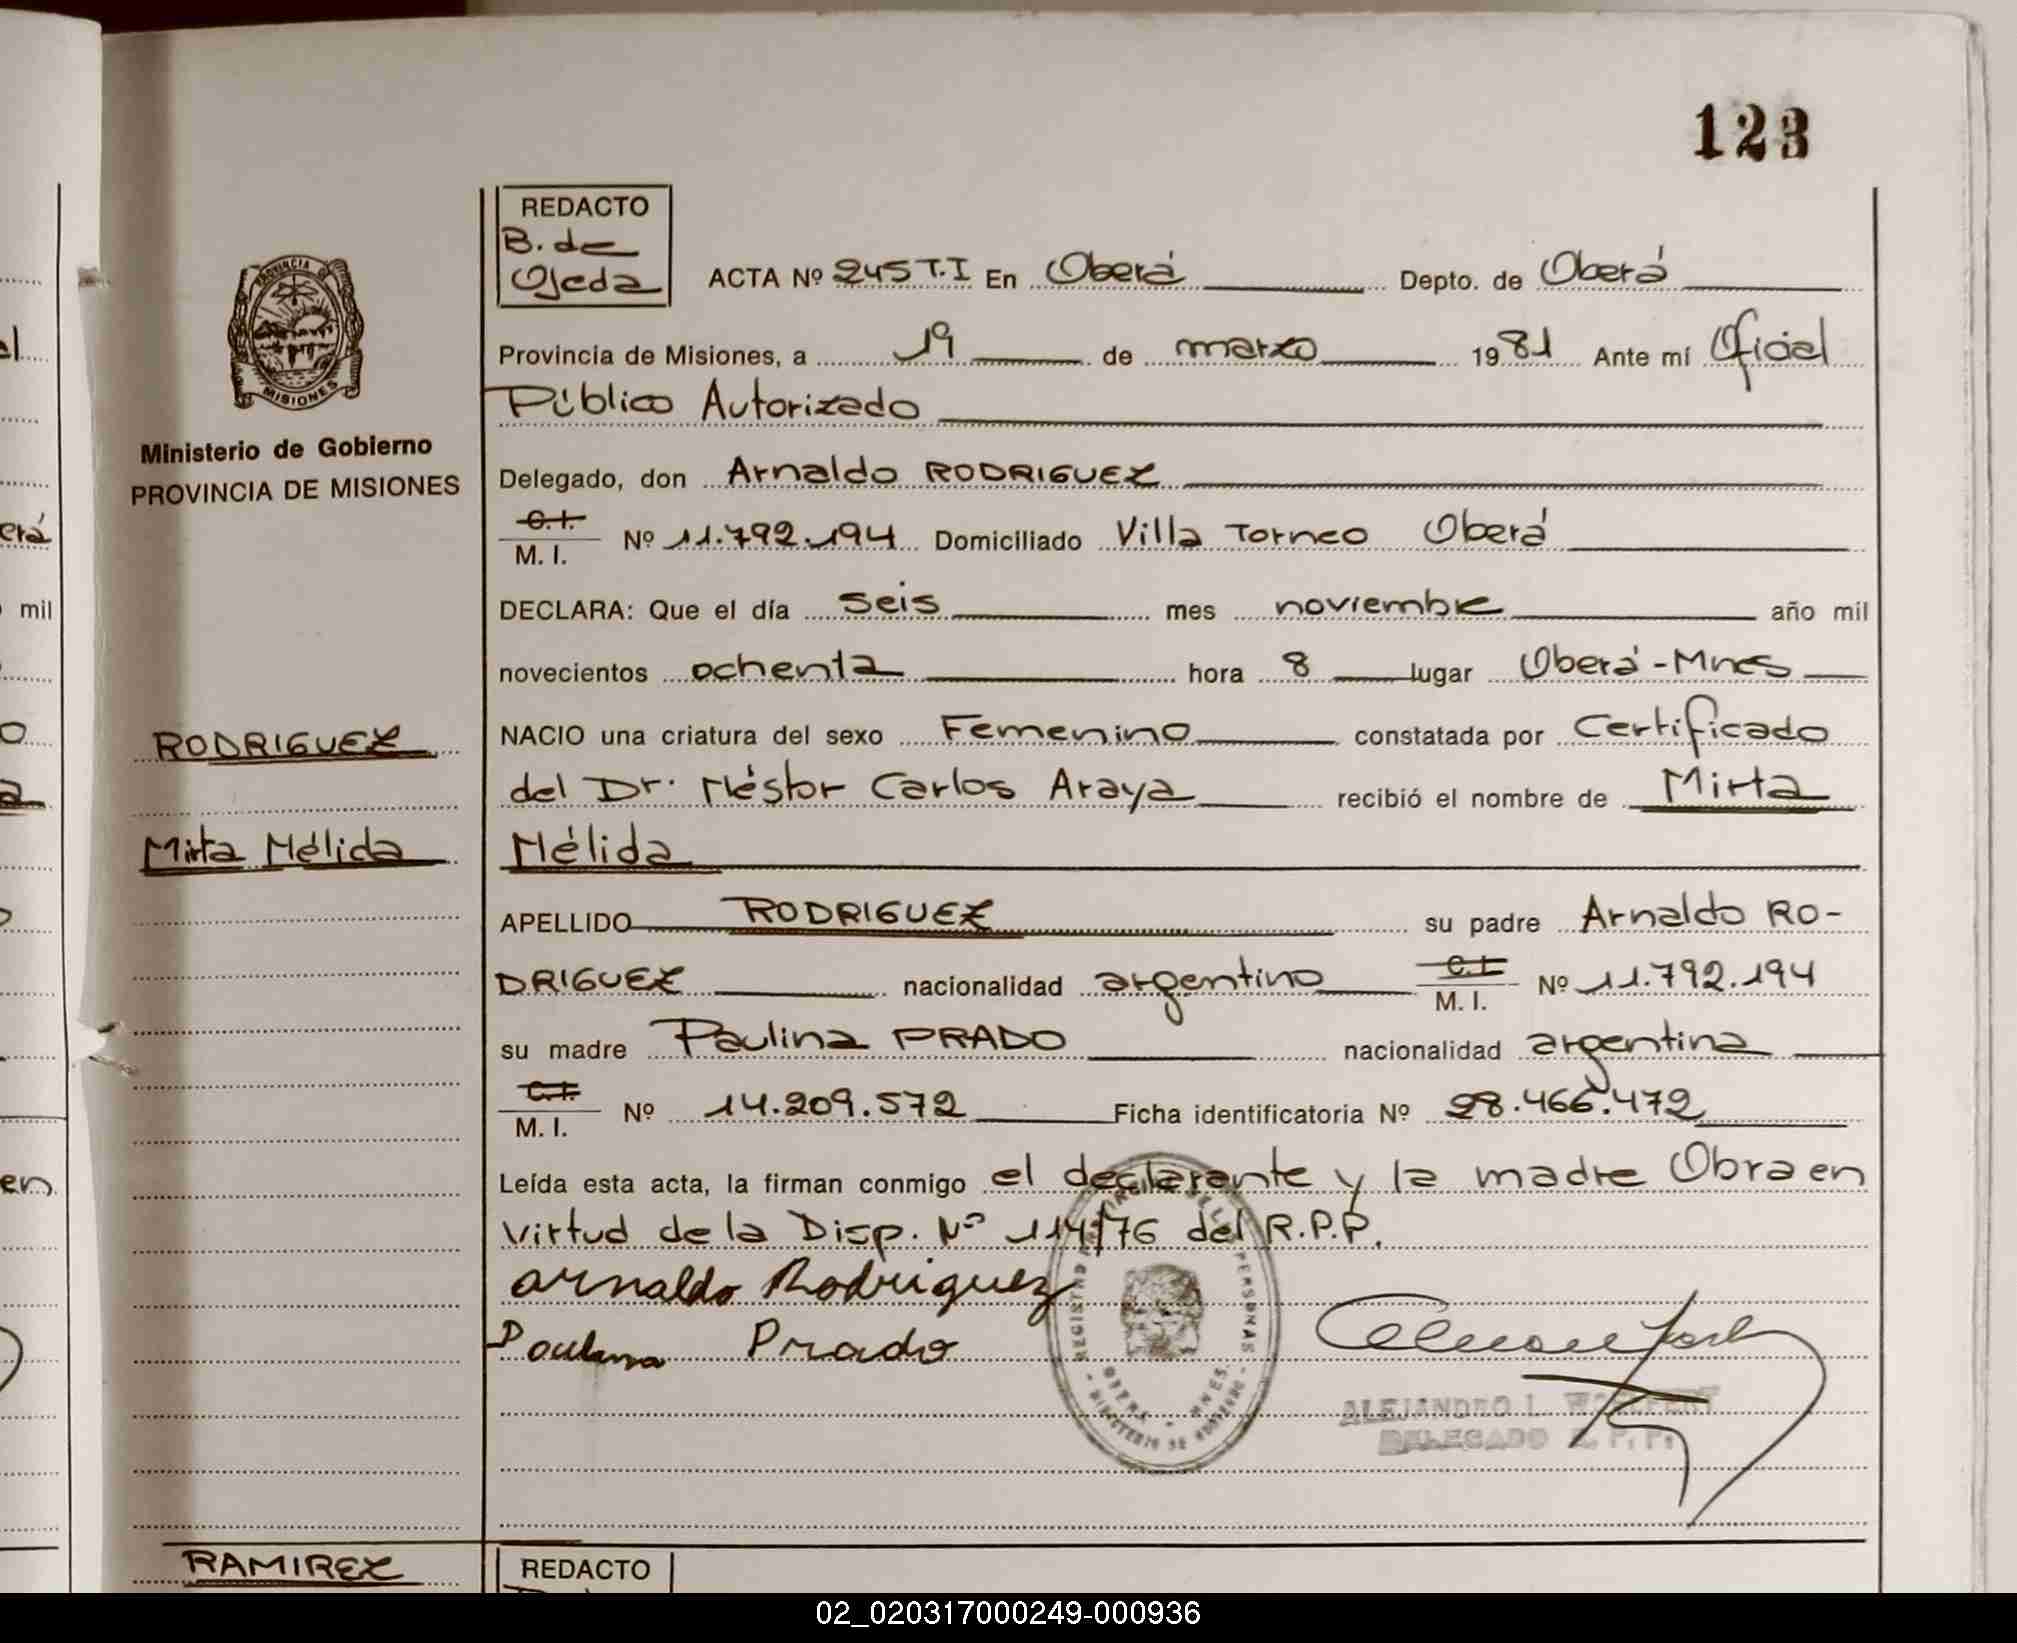 123
REDACTO
B. de
Ojeda
ACTA Nº 245 T.I En Oberá Depto. de Oberá
Provincia de Misiones, a 19 de marzo 1981 Ante mí Oficial
Público Autorizado
Delegado, don Arnaldo RODRIGUEZ
C.I.
M. I. Nº 11.792.194 Domiciliado Villa Torneo Oberá
DECLARA: Que el día seis mes noviembre año mil
novecientos ochenta hora 8 lugar Oberá-Mnes
NACIO una criatura del sexo Femenino constatada por Certificado
del Dr. Néstor Carlos Araya recibió el nombre de Mirta
Nélida
APELLIDO RODRIGUEZ su padre Arnaldo RO-
DRIGUEZ nacionalidad argentino C.I. M. I. Nº 11.792.194
su madre Paulina PRADO nacionalidad argentina
C.I.
M. I. Nº 14.209.572 Ficha identificatoria Nº 28.466.472
Leída esta acta, la firman conmigo el declarante y la madre Obra en
virtud de la Disp. Nº 114/76 del R.P.P.
Arnaldo Rodriguez
Paulina Prado
ALEJANDRO L. WOELFERT
DELEGADO R. P. P.
PROVINCIA DE
MISIONES
Ministerio de Gobierno
PROVINCIA DE MISIONES
RODRIGUEZ
Mirta Nélida
RAMIREZ
REDACTO
erá
mil
en
02_020317000249-000936